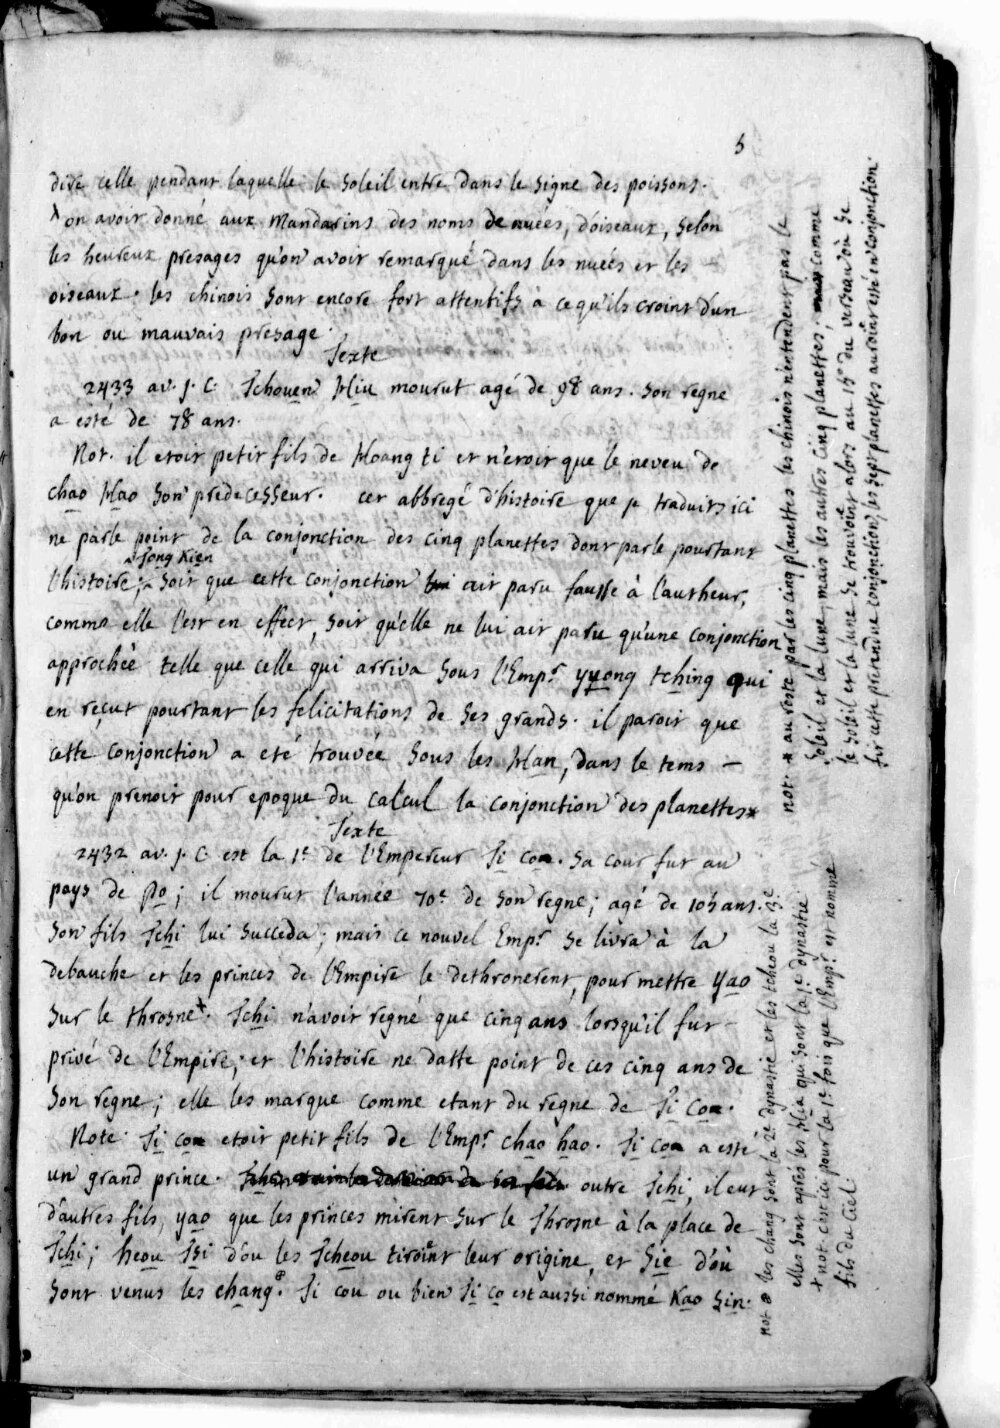 5
dire celle pendant laquelle le soleil entre dans le signe des poissons.
on avoit donné aux Mandarins des noms de nuées, d'oiseaux, selon
les heureux presages qu'on avoit remarqué dans les nuées et les
oiseaux. les chinois sont encore fort attentifs à ce qu'ils croint d'un
bon ou mauvais presage.
Texte
2433 av. j. C. Tchouen Hiu mourut agé de 98 ans. son regne
a esté de 78 ans.
Not. il etoit petit fils de Hoang ti et n'etoit que le neveu de
chao Hao son predecesseur. cet abbregé d'histoire que je traduits ici
ne parle point de la conjonction des cinq planettes dont parle pourtant
Tong Kien
l'histoire; soit que cette conjonction ait paru fausse à l'autheur,
comme elle l'est en effect, soit qu'elle ne lui ait paru qu'une conjonction
approchée telle que celle qui arriva sous l'Empr yyong tching qui
en reçut pourtant les felicitations de ses grands. il paroit que
cette conjonction a eté trouvée sous les Han, dans le tems —
qu'on prenoit pour epoque du calcul la conjonction des planettes*
Texte
2432 av. j. C. est la 1e de l'Empereur Ti cou. sa cour fut au
pays de Po; il mourut l'année 70e de son regne; agé de 105 ans.
son fils Tchi lui succeda; mais ce nouvel Empr se livra à la
debauche et les princes de l'Empire le dethronerent, pour mettre yao
sur le throsne+. Tchi n'avoit régné que cinq ans lorsqu'il fut
privé de l'Empire; et l'histoire ne datte point de ces cinq ans de
son regne; elle les marque comme etant du regne de Ti Cou.
Note. Ti cou etoit petit fils de l'Empr chao hao. Ti cou a esté
un grand prince. outre Tchi, il eut
d'autres fils, yao que les princes mirent sur le Throsne à la place de
Tchi; heou Tsi d'ou les Tcheou tiroint leur origine, et Sie d'où
sont venus les chang. Ti cou ou bien Ti co est aussi nommé Kao Sin.
not. * au reste par les cinq planettes les chinois n'entendent pas le
soleil et la lune, mais les autres cinq planettes; comme
le soleil et la lune se trouvoint alors au 15° du verseau où se
fit cette pretendue conjonction, les sept planettes auroint esté en conjonction.
not les chang sont la 2e dynastie et les tcheou la 3e
elles sont aprés les Hia qui sont la 1e dynastie.
+ not c'est ici pour la 1e fois que l'Empr est nommé
fils du Ciel.